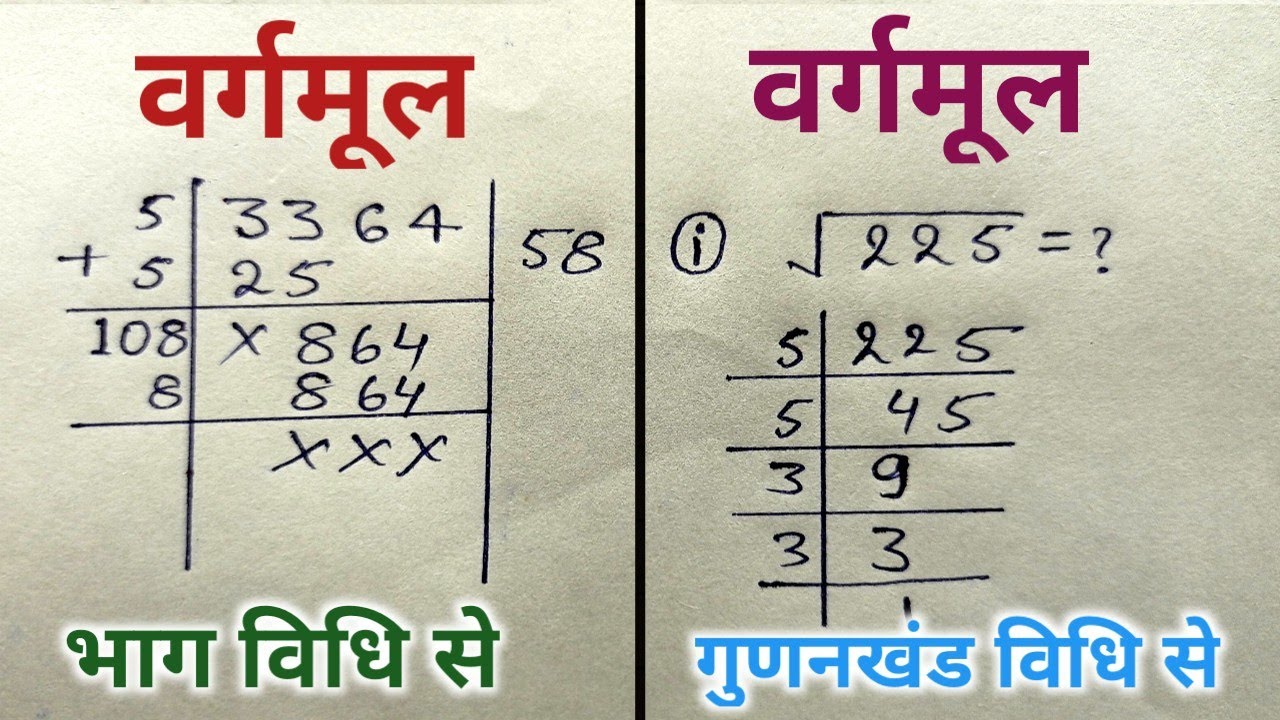 वर्गमूल
5 3364 58
+ 5 25
108 × 864
8 864
× × ×
भाग विधि से
वर्गमूल
(i) √225 = ?
5 225
5 45
3 9
3 3
1
गुणनखंड विधि से